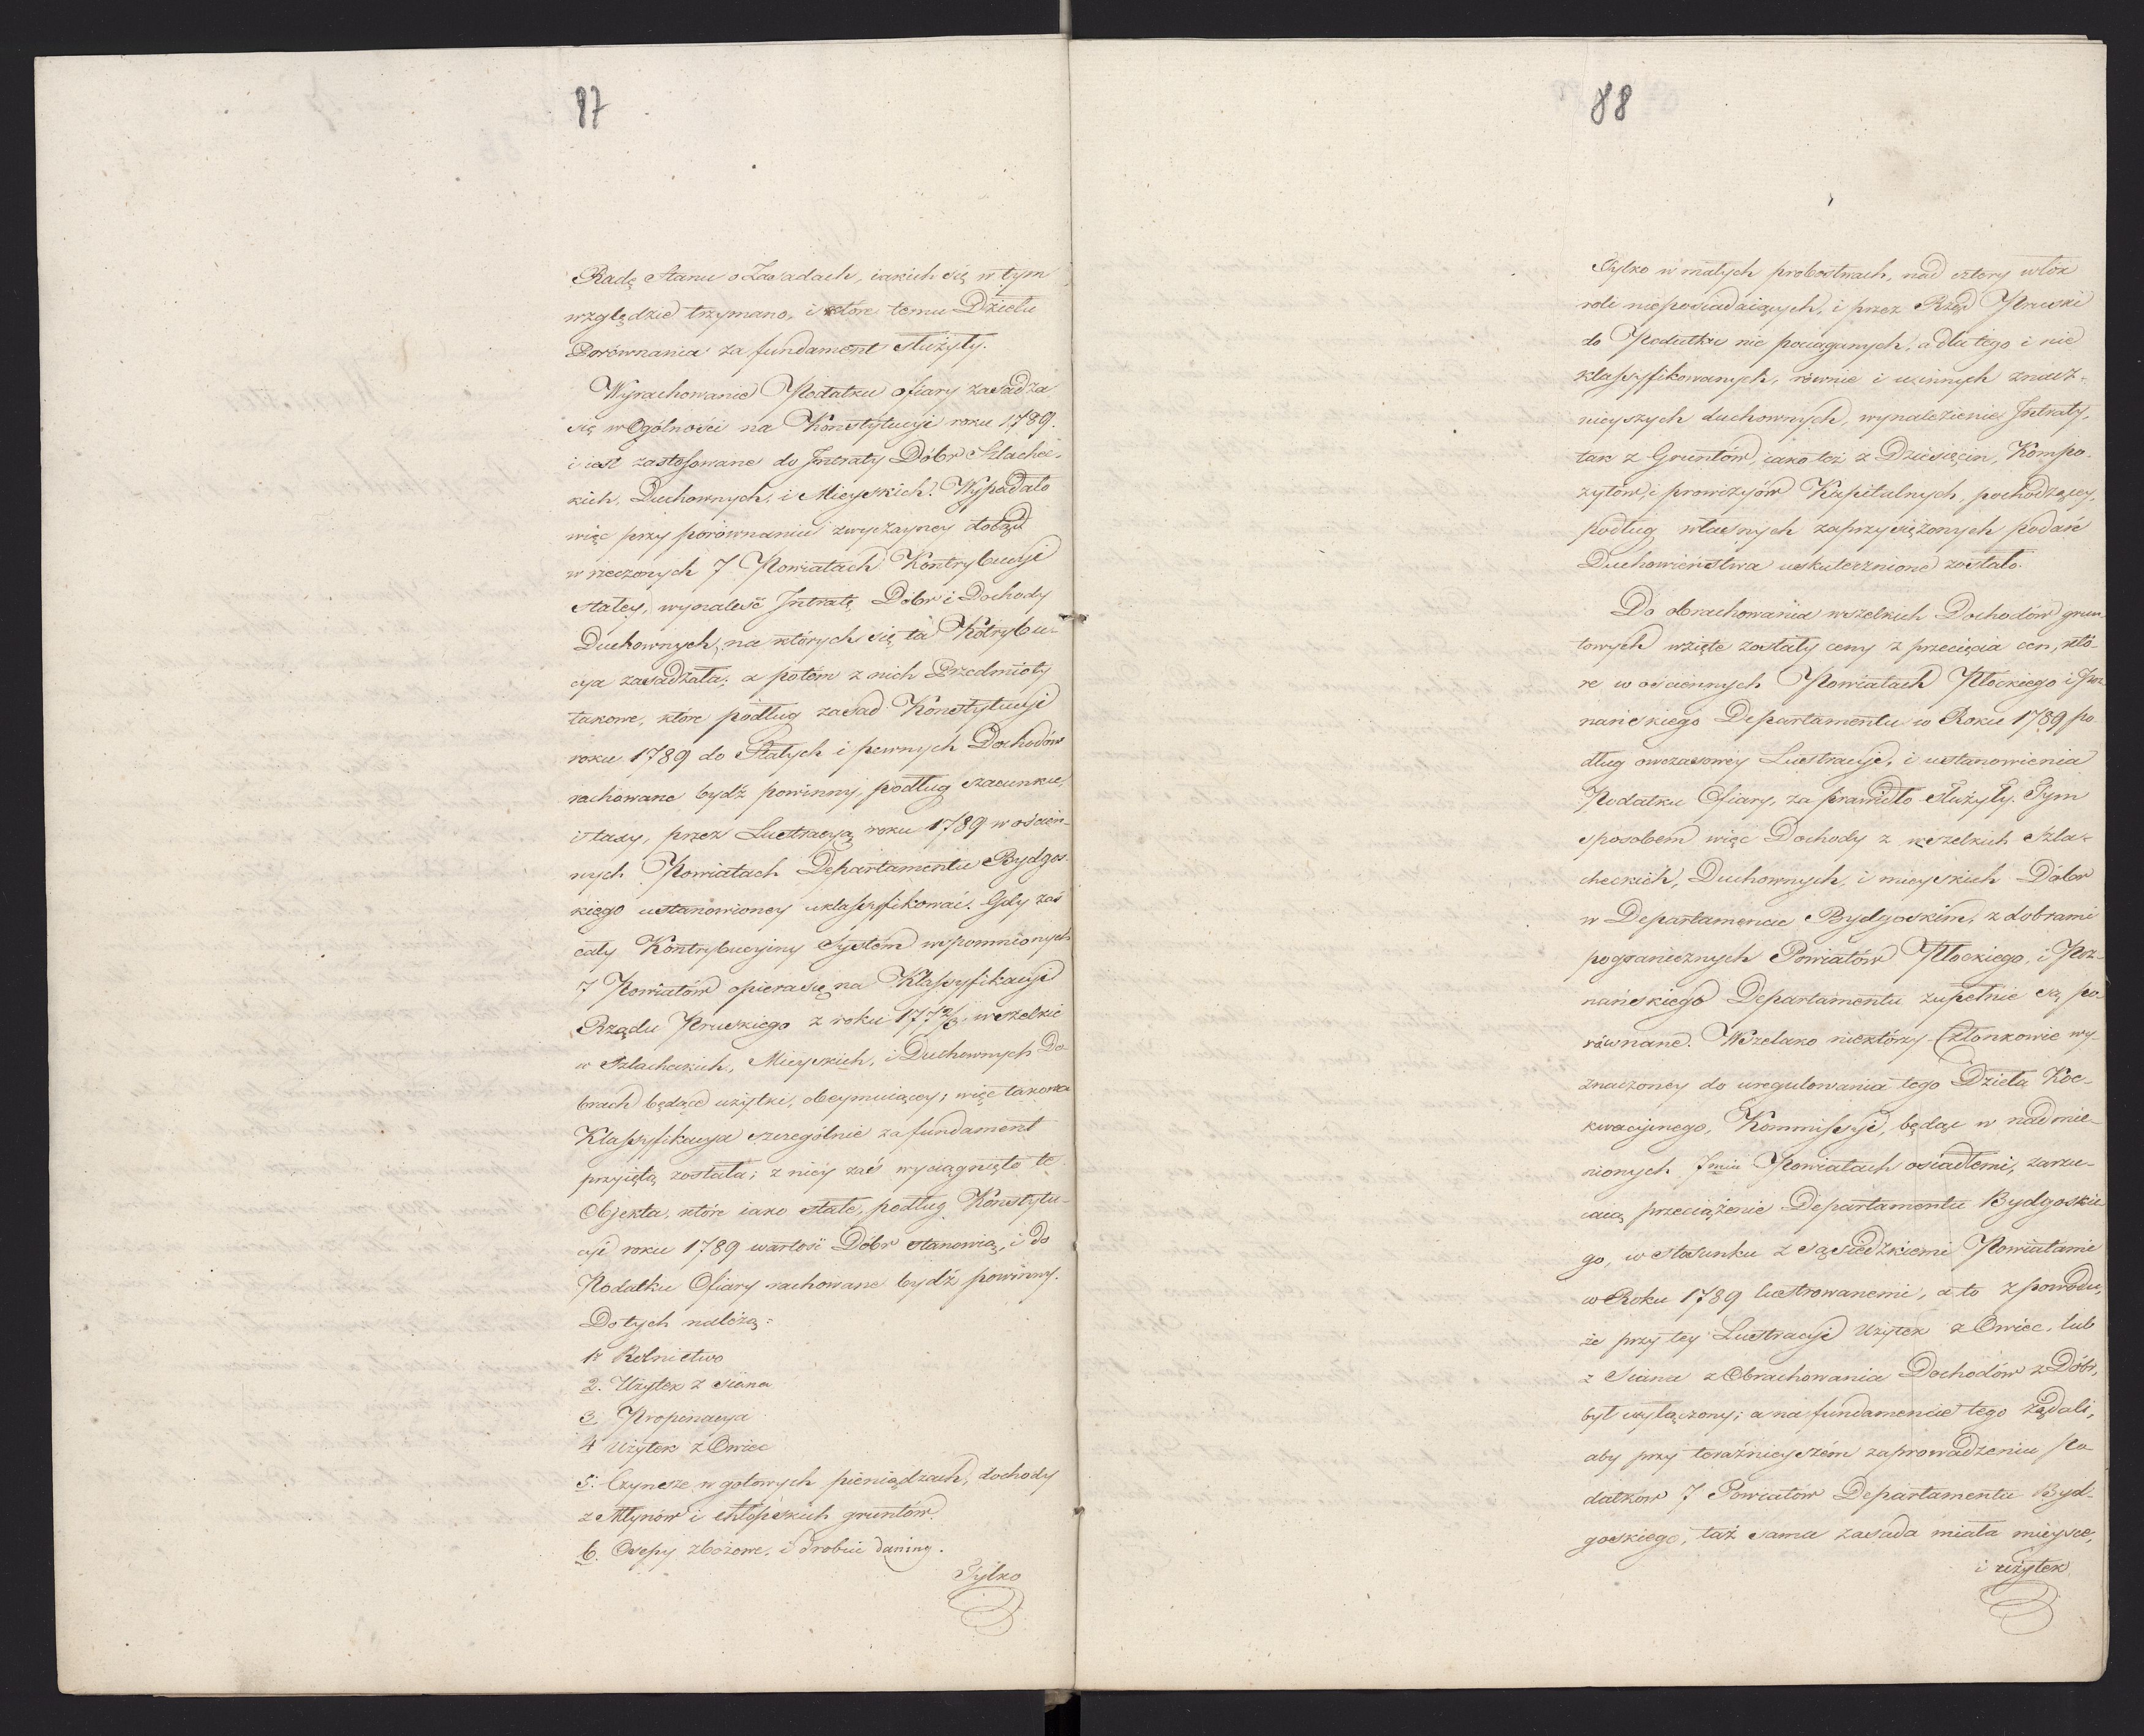 87
Radę Stanu o Zasadach, iakich się w tym
względzie trzymano, i które temu Dziełu
Porównania za fundament służyły.
Wyrachowanie Podatku ofiary zasadza
się w Ogólności na Konstytucyi roku 1789.
i iest zastosowane do Intraty Dóbr Szlachec-
kich, Duchownych, i Mieyskich. Wypadało
więc przy porównaniu zwyczayney dotąd
w rzeczonych 7 Powiatach Kontrybucyi
stałey, wynaleść Intratę Dóbr i Dochody
Duchownych, na których się ta Kotrybu-
cya zasadzała; a potém z nich Przedmioty
takowe, które podług zasad Konstytucyi
roku 1789 do Stałych i pewnych Dochodów
rachowane bydź powinny, podług szacunku,
i taxy, przez Lustracyą roku 1789 w ościen-
nych Powiatach Departamentu Bydgos-
kiego ustanowioney uklassyfikować. Gdy zaś
cały Kontrybucyiny System wspomnionych
7 Powiatów opiera się na Klassyfikacyi
Rządu Pruskiego z roku 1772/3, wszelkie
w Szlacheckich, Mieyskich, i Duchownych Do-
brach będące użytki, obeymuiącey; więc takowa
Klassyfikacya szczególnie za fundament
przyiętą została; z niey zaś wyciągnięto te
Objekta, które iako stałe, podług Konstytu-
cyi roku 1789 wartość Dóbr stanowią, i do
Podatku Ofiary rachowane bydź powinny.
Do tych należą:
1. Rolnictwo
2. Użytek z siana
3. Propinacya
4 Użytek z Owiec
5. Czynsze w gotowych pieniądzach, dochody
z Młynów i chłopskich gruntów.
6. Osepy zbożowe, i drobne daniny.
Tylko
88
Tylko w małych probostwach, nad cztery włók
roli nieposiadaiących, i przez Rząd Pruski
do Podatku nie pociąganych, a dla tego i nie
klassyfikowanych, równie i u innych znacz-
nieyszych duchownych, wynalezienie Intraty,
tak z Gruntów, iako też z Dziesięcin, Kompo-
zytów, i prowizyów Kapitalnych, pochodzącey,
podług własnych zaprzysiężonych podań
Duchowieństwa uskutecznione zostało.
Do obrachowania wszelkich Dochodów grun-
towych wzięte zostały ceny z przecięcia cen, któ-
re w ościennych Powiatach Płockiego i Poz
nańskiego Departamentu w Roku 1789 po
dług owczasowey Lustracyi, i ustanowienia
Podatku Ofiary, za prawidło służyły. Tym
sposobem więc Dochody z wszelkich Szla-
checkich, Duchownych, i mieyskich Dóbr
w Departamencie Bydgoskim, z dobrami
pogranicznych Powiatów Płockiego, i Poz-
nańskiego Departamentu zupełnie są po-
równane. Wszelako niektórzy Członkowie wy-
znaczoney do uregulowania tego Dzieła Koe-
kwacyinego, Kommissyi, będąc w nadmie-
nionych 7miu Powiatach osiadłemi, zarzu-
caią przeciążenie Departamentu Bydgoskie
go, w stosunku z sąsiedzkiemi Powiatami
w Roku 1789 lustrowanemi, a to z powodu,
że przy tey Lustracyi Użytek z Owiec, lub
z Siana z Obrachowania Dochodów z Dóbr,
był wyłączony; a na fundamencie tego żądali,
aby przy teraźnieyszém zaprowadzeniu Po
datków 7 Powiatów Departamentu Byd-
goskiego, taż sama zasada miała mieysce,
i użytek